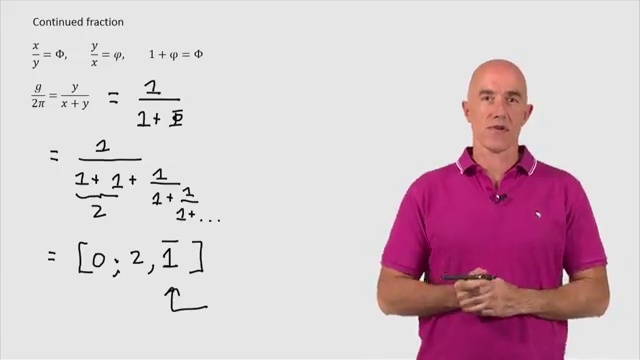 Continued fraction
x/y = Φ, y/x = φ, 1 + φ = Φ
g/2π = y/(x + y) = 1/(1 + Φ)
= 1/(1 + 1 + 1/(1 + 1/(1 + ...
2
= [0; 2, 1̅]